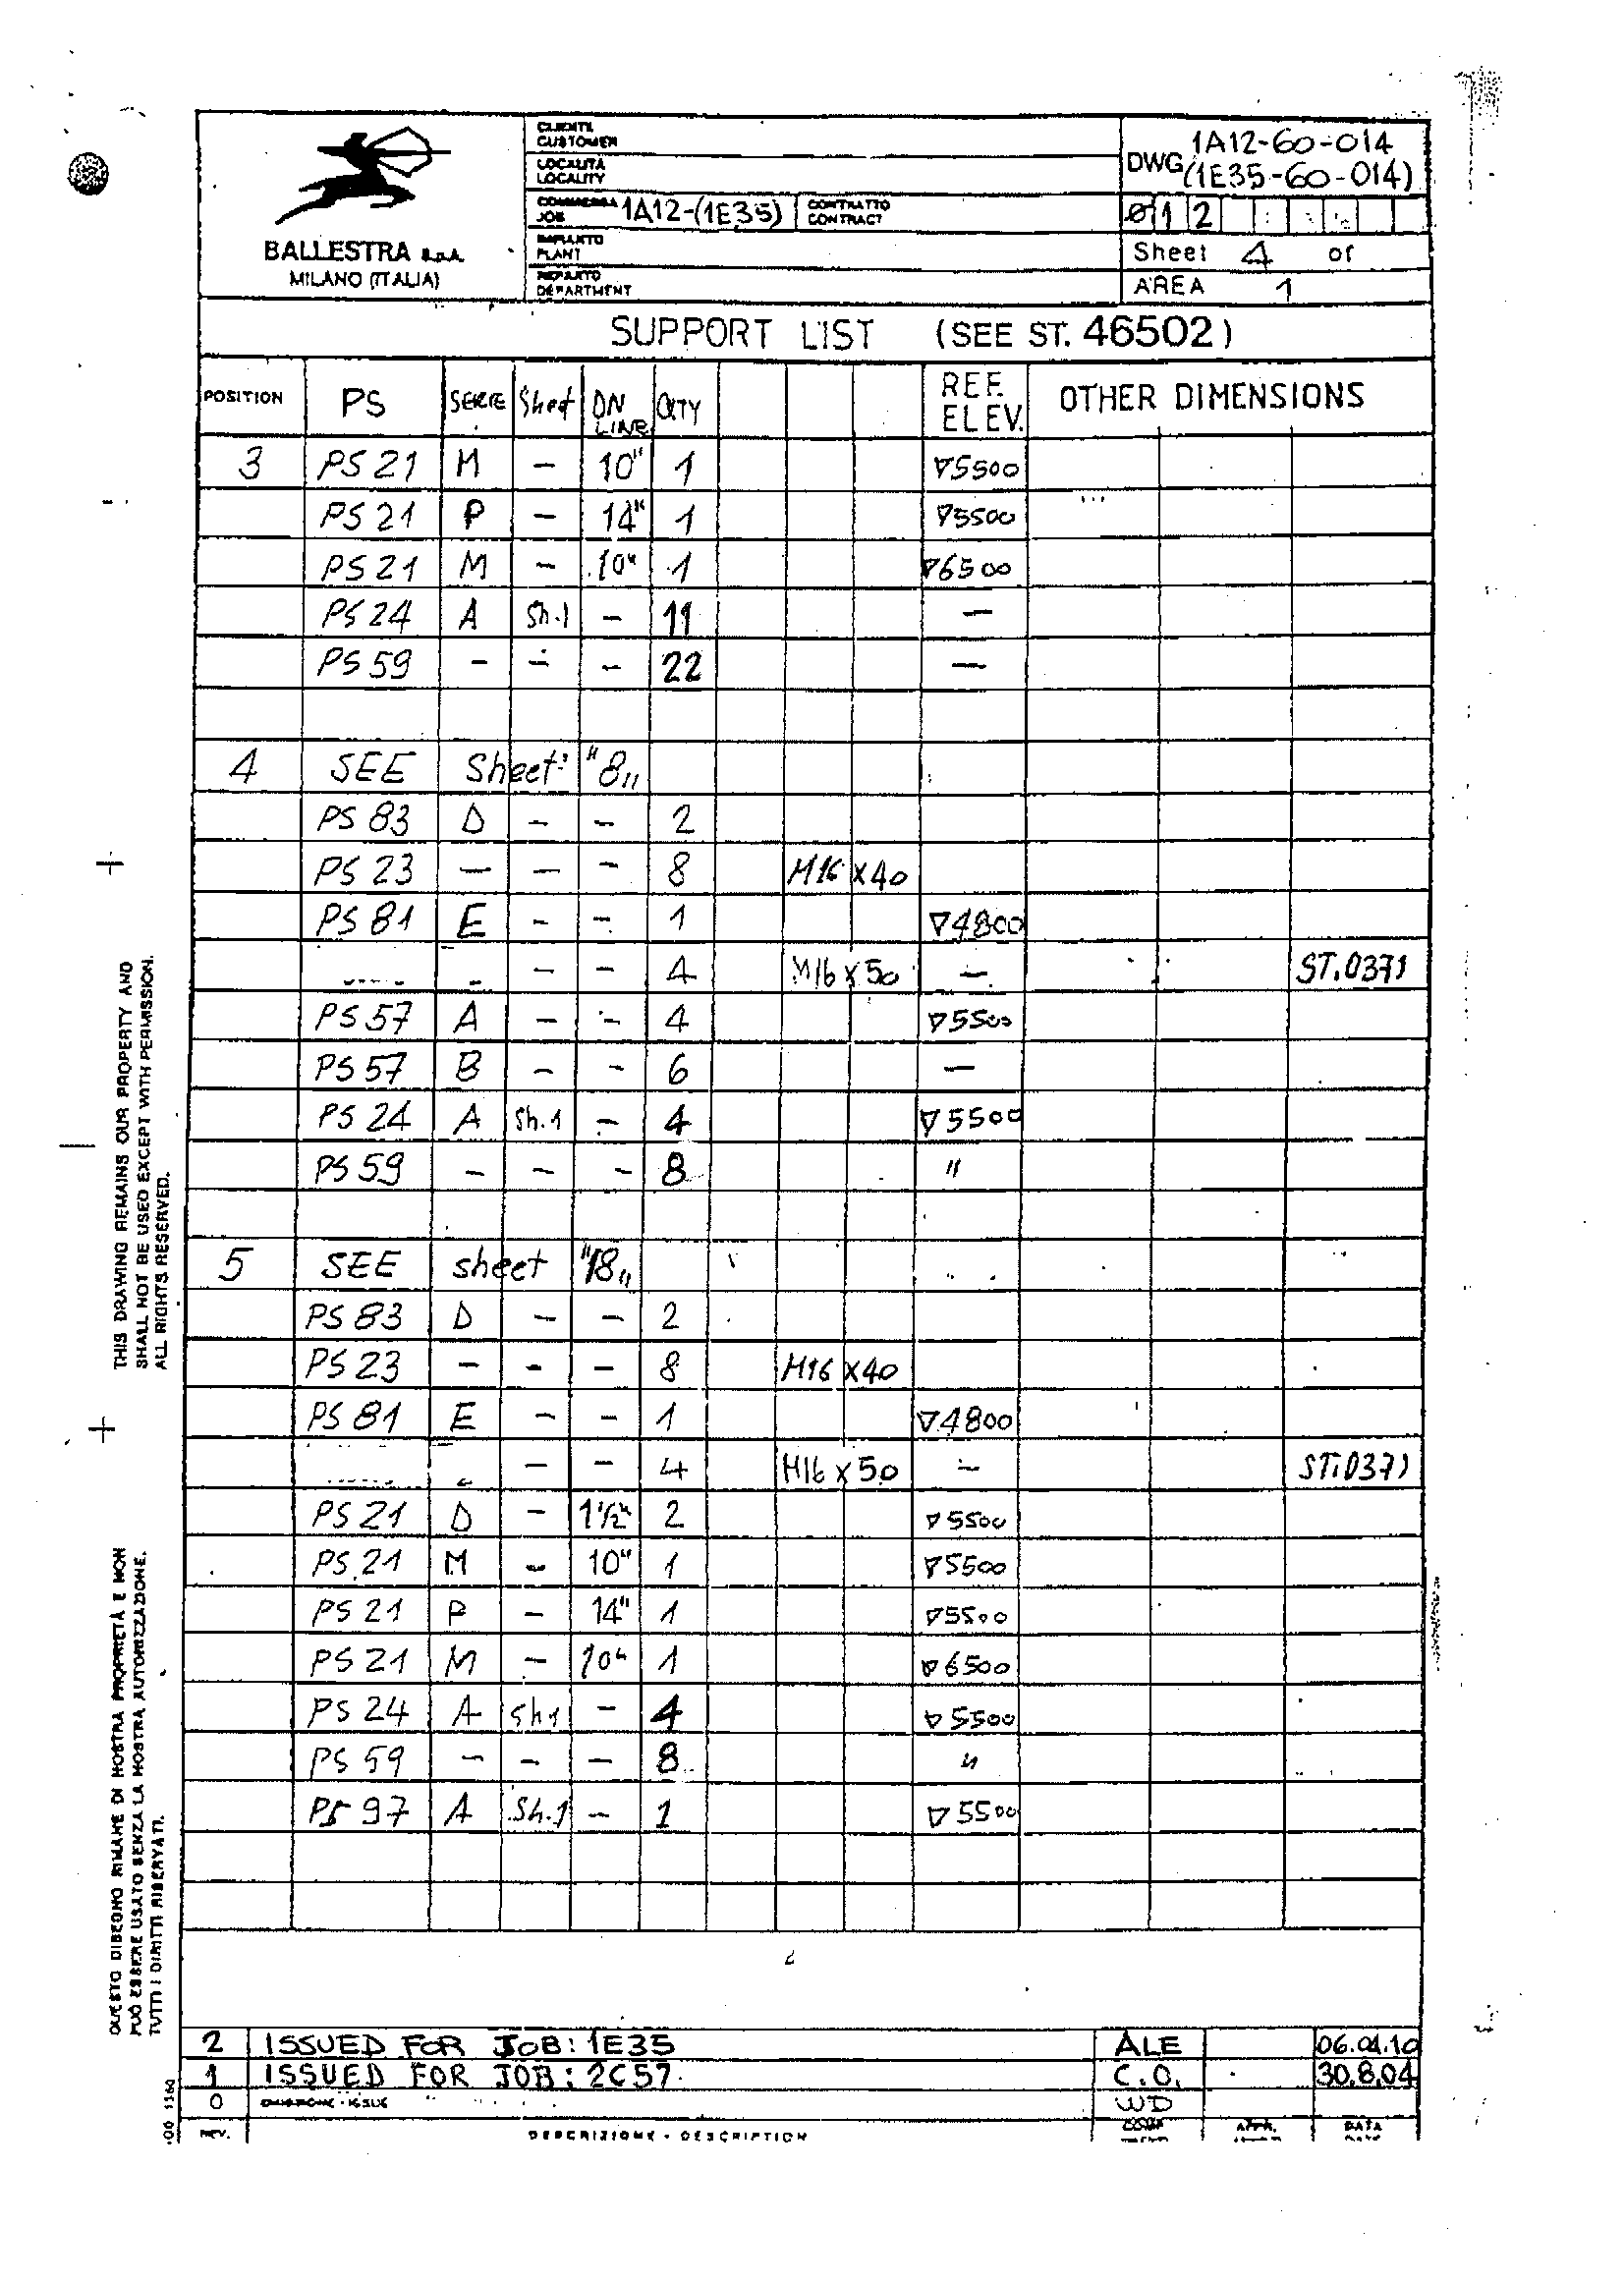 CLIENTE
CUSTOMER
LOCALITA
LOCALITY
COMMESSA
JOB 1A12-(1E35) CONTRATTO
CONTRACT
IMPIANTO
PLANT
REPARTO
DEPARTMENT
BALLESTRA S.p.A.
MILANO (ITALIA)
1A12-60-014
DWG (1E35-60-014)
0 1 2
Sheet 4 of
AREA 1
SUPPORT LIST (SEE ST. 46502)
POSITION PS SERIE Sheet DN LINE QTY REF. ELEV. OTHER DIMENSIONS
3 PS 21 M - 10" 1 ▽5500
PS 21 P - 14" 1 ▽5500
PS 21 M - 10" 1 ▽6500
PS 24 A Sh.1 - 11 -
PS 59 - - - 22 -
4 SEE Sheet "8"
PS 83 D - - 2
PS 23 - - - 8 M16 x40
PS 81 E - - 1 ▽4800
- - 4 M16 x 50 - ST.0371
PS 57 A - - 4 ▽5500
PS 57 B - - 6 -
PS 24 A Sh.1 - 4 ▽5500
PS 59 - - - 8 "
5 SEE sheet "18"
PS 83 D - - 2
PS 23 - - - 8 M16 x40
PS 81 E - - 1 ▽4800
- - 4 M16 x 50 - ST.0371
PS 21 D - 1½" 2 ▽5500
PS 21 M - 10" 1 ▽5500
PS 21 P - 14" 1 ▽5500
PS 21 M - 10" 1 ▽6500
PS 24 A Sh1 - 4 ▽5500
PS 59 - - - 8 "
PS 97 A Sh.1 - 1 ▽5500
THIS DRAWING REMAINS OUR PROPERTY AND
SHALL NOT BE USED EXCEPT WITH PERMISSION.
ALL RIGHTS RESERVED.
QUESTO DISEGNO RIMANE DI NOSTRA PROPRIETÀ E NON
PUÒ ESSERE USATO SENZA LA NOSTRA AUTORIZZAZIONE.
TUTTI I DIRITTI RISERVATI.
2 ISSUED FOR JOB: 1E35 ALE 06.04.10
1 ISSUED FOR JOB: 2C57 C.O. 30.8.04
0 EMISSIONE - ISSUE WD
REV. DESCRIZIONE - DESCRIPTION APPR. DATA